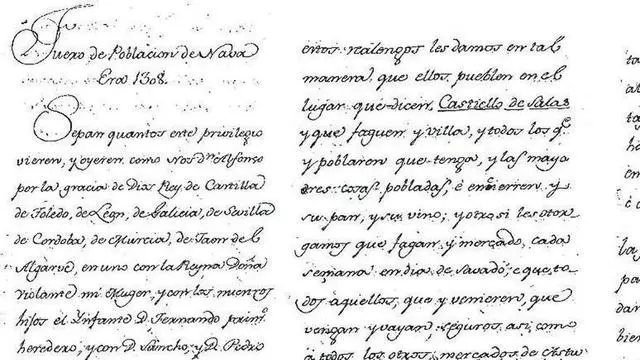 Fuero de Poblacion de Nava
Era 1308.
Sepan quantos este privilegio
vieren, y oyeren como Nos Dn. Alfonso
por la gracia de Dios Rey de Castilla
de Toledo, de Leon, de Galicia, de Sevilla
de Cordoba, de Murcia, de Jaen del
Algarve, en uno con la Reyna Doña
Violante mi Muger, y con los nuestros
hijos el Ynfante D. Fernando prim.º
heredero, y con D. Sancho, y D. Pedro
estos realengos les damos en tal
manera que ellos pueblen en el
lugar que dicen, Castiello de Salas
y que faguen y villa, y todos los qe
y poblaren que tenga, y las mayo
dres cosas pobladas, é encierren y
su pan, y su vino; y otrosi les otor
gamos que fagan y mercado, cada
semana en dia de Savado; e que to
dos aquellos, que y venieren, que
vengan y vayan, seguros, asi como
a todos los otros, mercados de